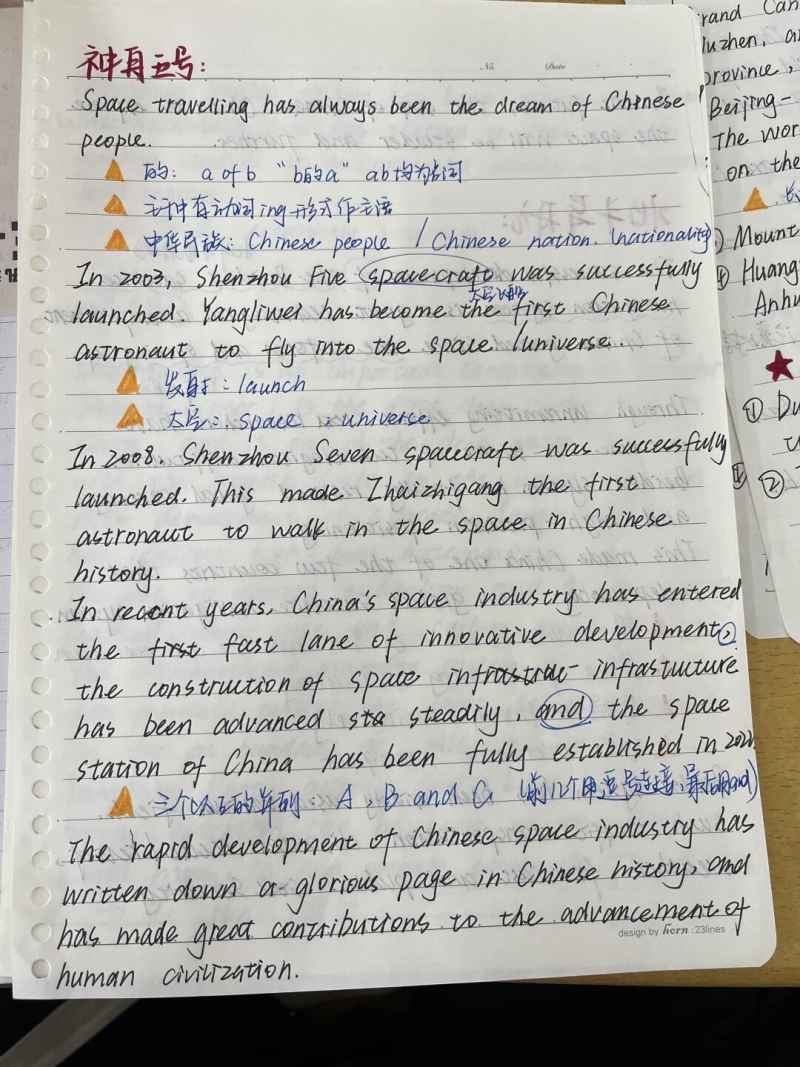 神舟五号:
No. Date
Space travelling has always been the dream of Chinese
people.
的: a of b "b的a" ab均为名词
主语中有动词ing形式作主语
中华民族: Chinese people / Chinese nation. (nationality)
In 2003, Shenzhou Five spacecraft was successfully
launched. Yangliwei has become the first Chinese
astronaut to fly into the space /universe.
发射: launch
太空: space, universe
In 2008, Shenzhou Seven spacecraft was successfully
launched. This made Zhaizhigang the first
astronaut to walk in the space in Chinese
history.
In recent years, China's space industry has entered
the first fast lane of innovative development,
the construction of space infrastruc- infrastucture
has been advanced sta steadily, and the space
station of China has been fully established in 2022
三个以上的并列: A, B and C (前几个用逗号连接,最后用and)
The rapid development of Chinese space industry has
written down a glorious page in Chinese history, and
has made great contributions to the advancement of
design by horn :23lines
human civilization.
rand Can
luzhen, a
province,
Beijing-
The wor
on the
Mount
Huang
Anhu
① Du
②